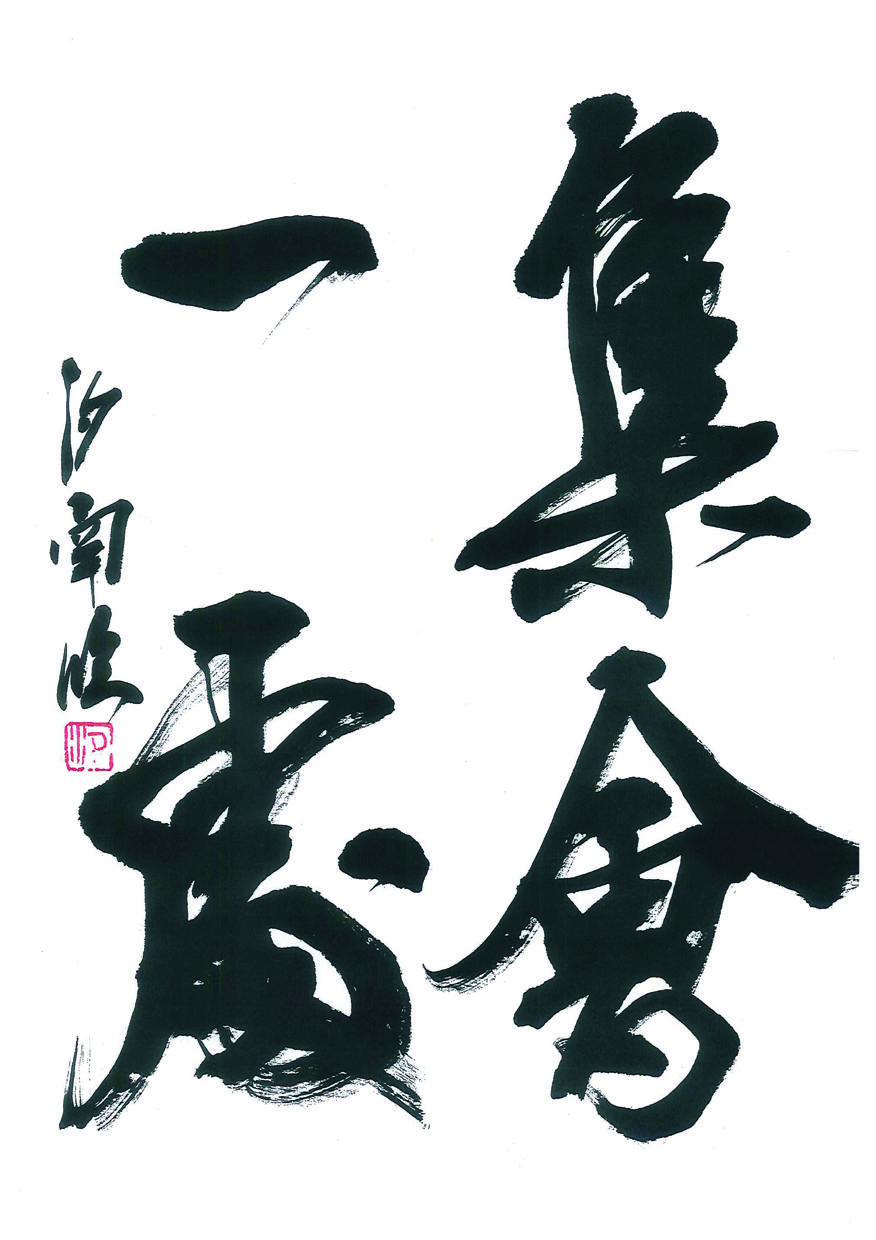 集會
一處
汐南臨